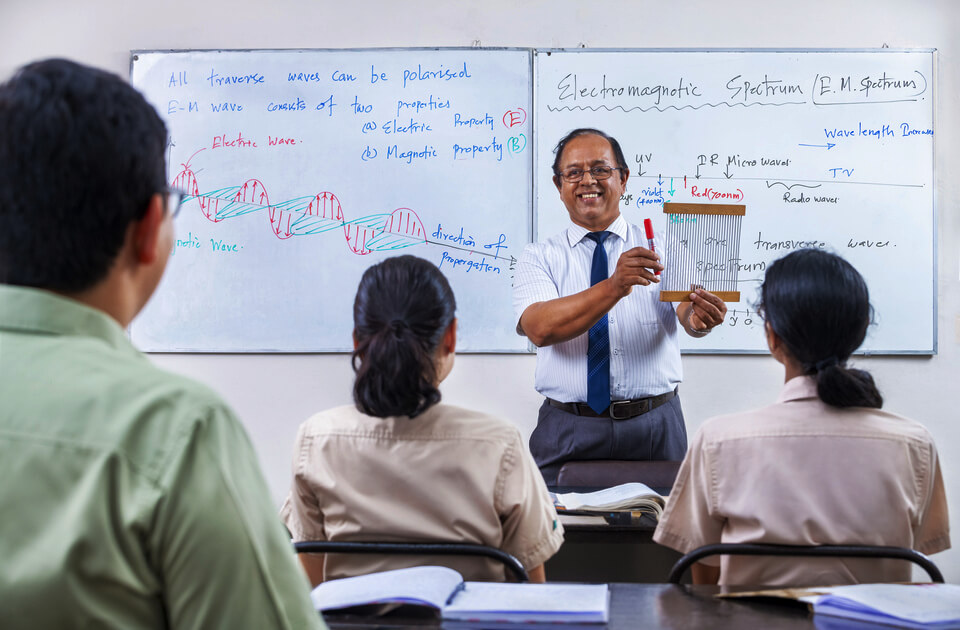 All traverse waves can be polarised
E-M wave consists of two properties
(a) Electric Property (E)
(b) Magnetic property (B)
Electric Wave.
netic Wave.
direction of
Propergation
Electromagnetic Spectrum (E.M. Spectrum)
Wavelength Increases
UV IR Micro waves TV
violet
(400nm)
Red (700nm)
Radio waves
are transverse waves.
spectrum